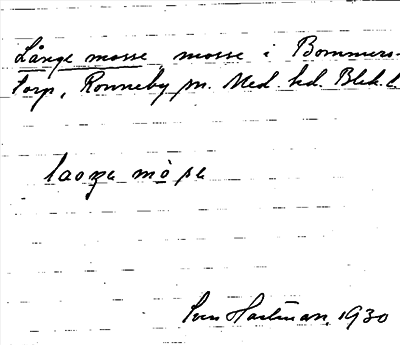 Långe mosse mosse i Bommers-
torp, Ronneby sn. Med. hd. Blek. l.
laŋə mòsə
Sven Hartman, 1930